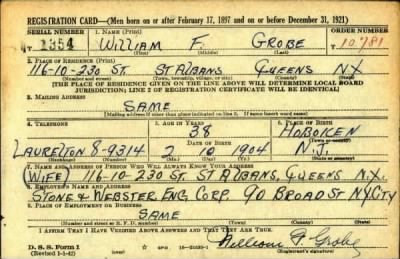 REGISTRATION CARD—(Men born on or after February 17, 1897 and on or before December 31, 1921)
SERIAL NUMBER 1. NAME (Print) ORDER NUMBER
T 1354 WILLIAM F. GROBE 10781
(First) (Middle) (Last)
2. PLACE OF RESIDENCE (Print)
116-10-230 ST. ST ALBANS QUEENS N.Y.
(Number and street) (Town, township, village, or city) (County) (State)
[THE PLACE OF RESIDENCE GIVEN ON THE LINE ABOVE WILL DETERMINE LOCAL BOARD
JURISDICTION; LINE 2 OF REGISTRATION CERTIFICATE WILL BE IDENTICAL]
3. MAILING ADDRESS
SAME
[Mailing address if other than place indicated on line 2. If same insert word same]
4. TELEPHONE 5. AGE IN YEARS 6. PLACE OF BIRTH
38 HOBOKEN
DATE OF BIRTH
LAURELTON 8-9314 2 10 1904 N.J.
(Exchange) (Number) (Mo.) (Day) (Yr.) (State or country)
7. NAME AND ADDRESS OF PERSON WHO WILL ALWAYS KNOW YOUR ADDRESS
(WIFE) 116-10-230 ST. ST ALBANS, QUEENS N.Y.
8. EMPLOYER'S NAME AND ADDRESS
STONE & WEBSTER ENG CORP. 90 BROAD ST NYCITY
9. PLACE OF EMPLOYMENT OR BUSINESS
SAME
(Number and street or R. F. D. number) (Town) (County) (State)
I AFFIRM THAT I HAVE VERIFIED ABOVE ANSWERS AND THAT THEY ARE TRUE.
D. S. S. Form 1
(Revised 1-1-42) William F. Grobe